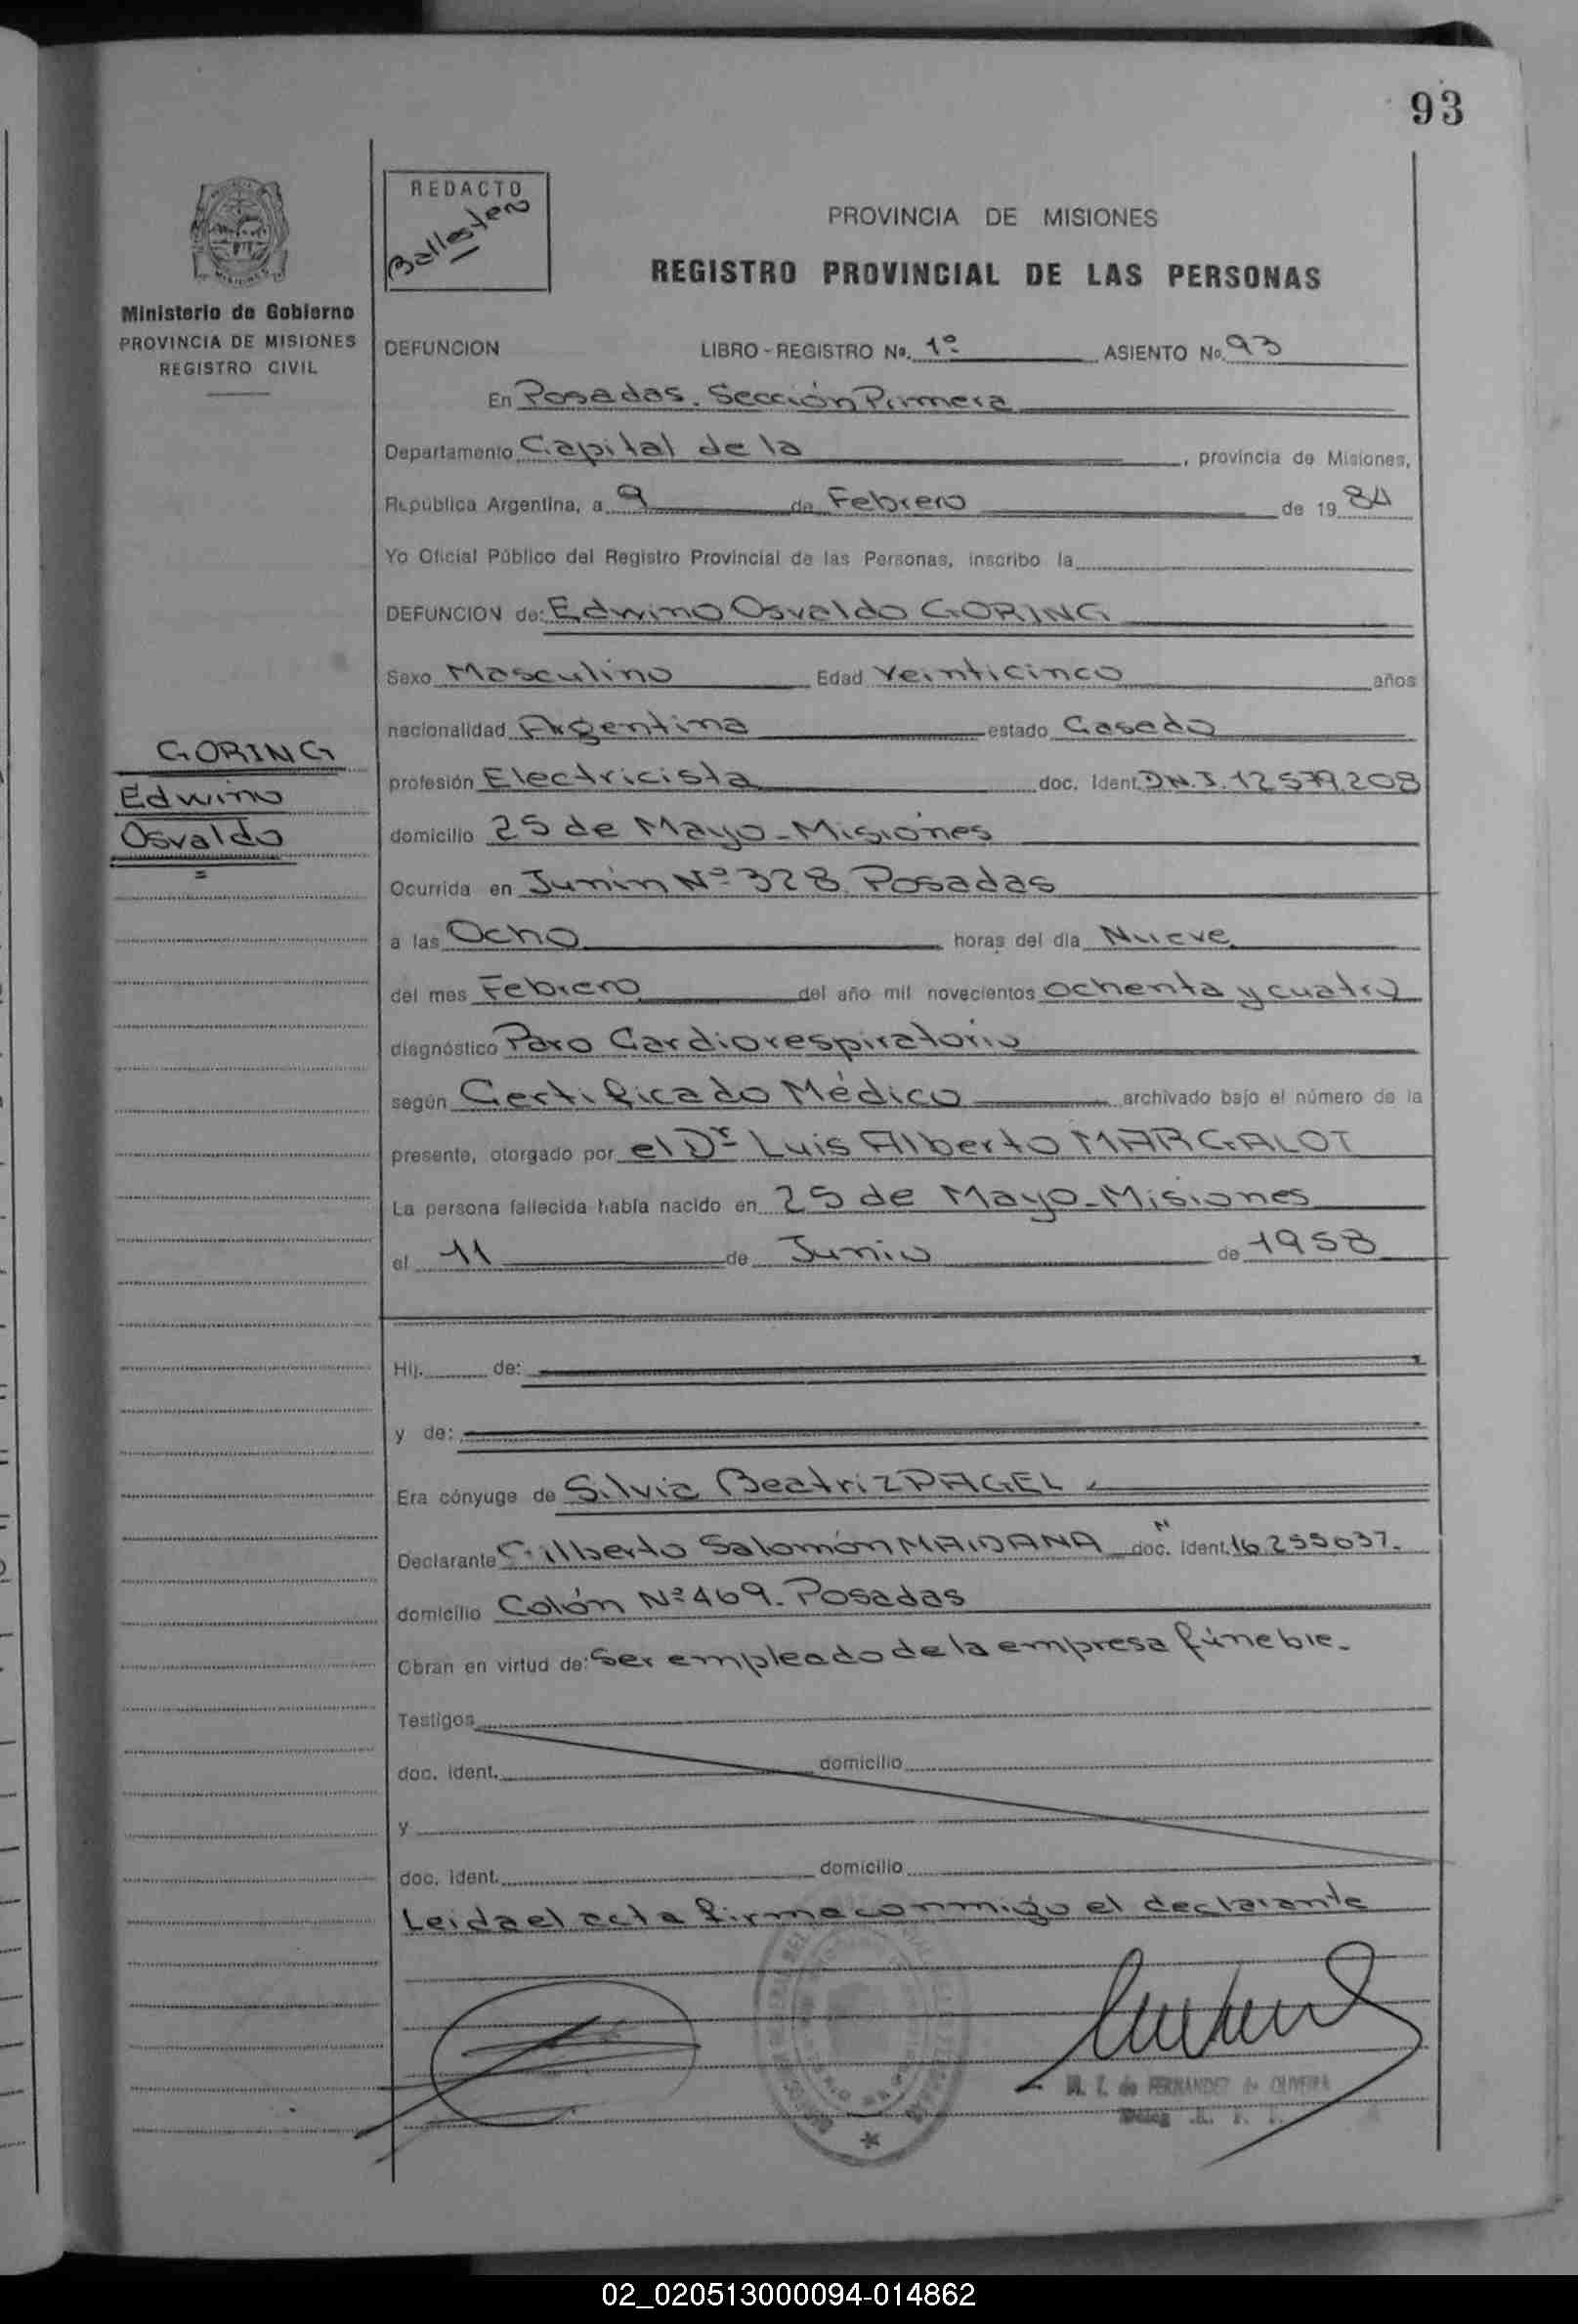 93
REDACTO
Ballestero
PROVINCIA DE MISIONES
REGISTRO PROVINCIAL DE LAS PERSONAS
Ministerio de Gobierno
PROVINCIA DE MISIONES
REGISTRO CIVIL
DEFUNCION LIBRO - REGISTRO No. 1º ASIENTO No. 93
En Posadas. Sección Primera
Departamento Capital de la, provincia de Misiones,
República Argentina, a 9 de Febrero de 19 84
Yo Oficial Público del Registro Provincial de las Personas, inscribo la
DEFUNCION de: Edwino Osvaldo GORING
Sexo Masculino Edad Veinticinco años
nacionalidad Argentina estado Casado
GORING
Edwino
Osvaldo
profesión Electricista doc. Ident. D.N.I. 12.579.208
domicilio 25 de Mayo - Misiones
Ocurrida en Junín Nº 328. Posadas
a las Ocho horas del día Nueve
del mes Febrero del año mil novecientos ochenta y cuatro
diagnóstico Paro Cardiorespiratorio
según Certificado Médico archivado bajo el número de la
presente, otorgado por el Dr Luis Alberto MARGALOT
La persona fallecida había nacido en 25 de Mayo - Misiones
el 11 de Junio de 1958
Hij. de:
y de:
Era cónyuge de Silvia Beatriz PAGEL
Declarante Gilberto Salomón MAIDANA doc. Ident. 16.255037.
domicilio Colón Nº 469. Posadas
Obran en virtud de: Ser empleado de la empresa fúnebre.
Testigos
doc. ident. domicilio
y
doc. ident. domicilio
Leida el acta firma conmigo el declarante
M. T. de FERNANDEZ de OLIVEIRA
02_020513000094-014862